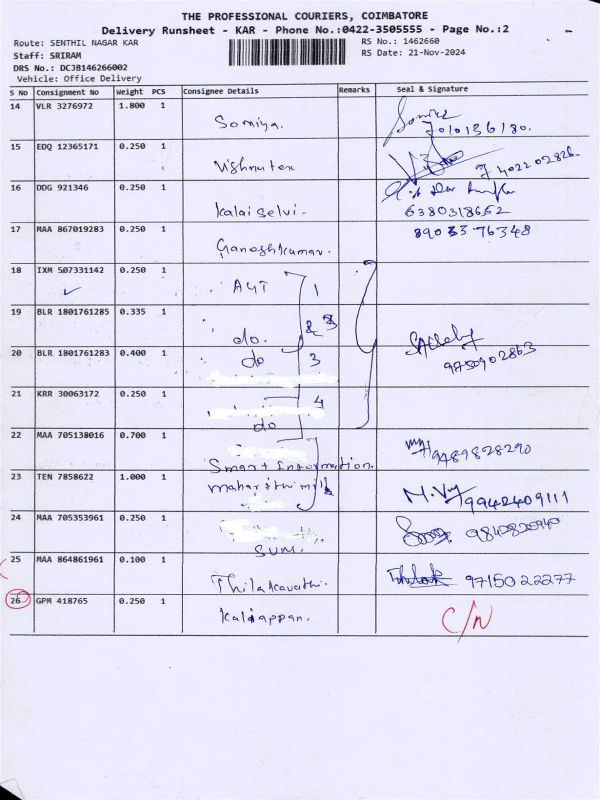 THE PROFESSIONAL COURIERS, COIMBATORE
Delivery Runsheet - KAR - Phone No.:0422-3505555 - Page No.:2
Route: SENTHIL NAGAR KAR
RS No.: 1462660
Staff: SRIRAM
RS Date: 21-Nov-2024
DRS No.: DCJB146266002
Vehicle: Office Delivery
S No Consignment No Weight PCS Consignee Details Remarks Seal & Signature
14 VLR 3276972 1.800 1 Somiya.
15 EDQ 12365171 0.250 1
16 DDG 921346 0.250 1 Kalaiselvi. 6380318652
17 MAA 867019283 0.250 1 Ganeshkumar. 89033 76348
18 IXM 507331142 0.250 1 1
19 BLR 1801761285 0.335 1 do.
20 BLR 1801761283 0.400 1 do 3 9750902863
21 KRR 30063172 0.250 1 do 4
22 MAA 705138016 0.700 1 Smart Information. 9489828290
23 TEN 7858622 1.000 1 9942409111
24 MAA 705353961 0.250 1 SUM. 9840820940
25 MAA 864861961 0.100 1 Thilakavathi. Thilak 9715022277
26 GPM 418765 0.250 1 Kaliappan. C/N